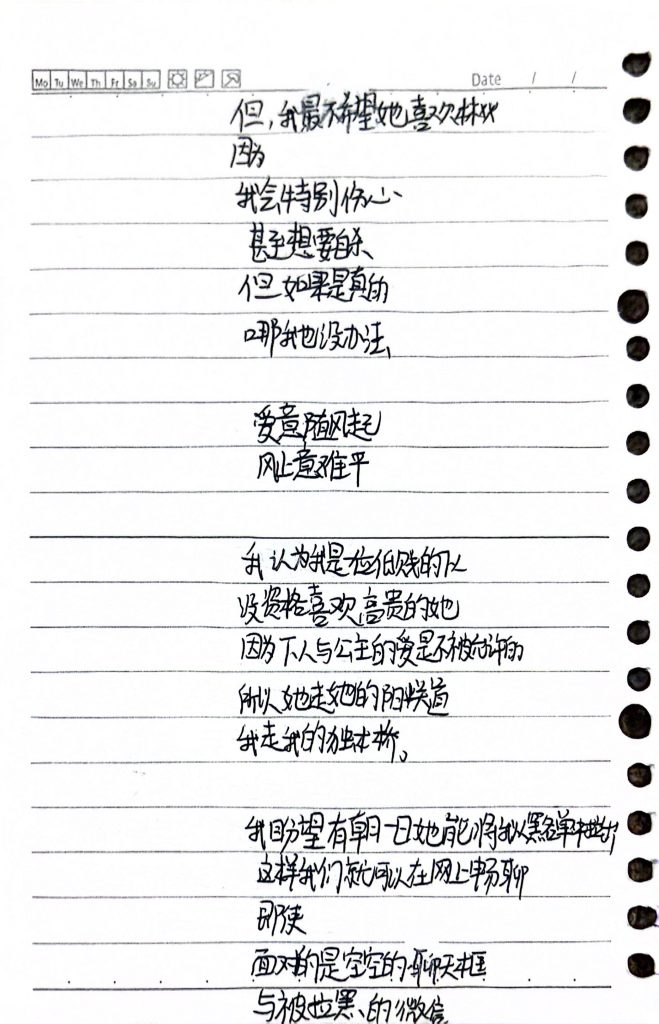 Mo Tu We Th Fr Sa Su Date / /
但，我最不希望她喜欢林
因为
我会特别伤心
甚至想要自杀、
但如果是真的
哪我也没办法、
爱意随风起
风止意难平
我认为我是位低贱的下人
没资格喜欢高贵的她
因为下人与公主的爱是不被允许的
所以她走她的阳关道
我走我的独木桥。
我盼望有朝一日她能将我从黑名单中
这样我们就可以在网上畅聊
即使
面对的是空空的聊天框
与被拉黑、的微信